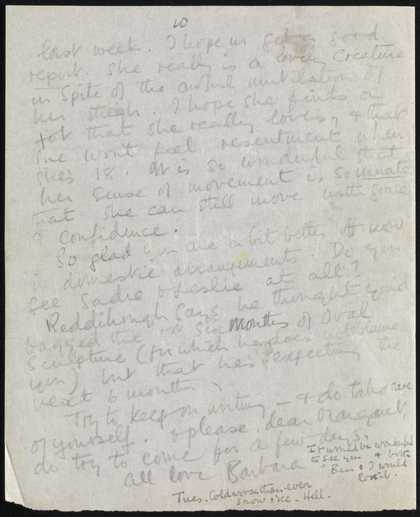 10
last week. I hope we get a good
report. She really is a lovely creature
in spite of the awful mutilation of
her thigh. I hope she finds a
job that she really loves & that
she wont feel resentment when
she's 18. It is so wonderful that
her sense of movement is so innate
that she can still move with grace
& confidence.
So glad you are a bit better off now
in domestic arrangements. Do you
see Sadie & Leslie at all?
Reddihough says he thought you'd
bagged the 1st six months of Oval
Sculpture (for which he does
) but that he's expecting the
next 6 months!
Try to keep on writing — & do take care
of yourself. & please, dear Margaret,
do try to come for a few days.
All love Barbara
It would be wonderful
to see you & both
Ben & I would
love it.
Tues. Colder than ever
snow & ice. Hell.